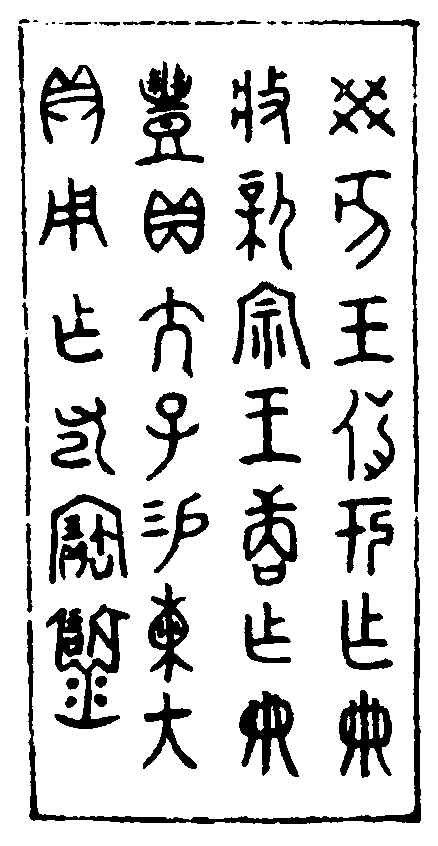 癸亥王迖于乍冊
般新宗王商乍冊
豐貝大子易東大
貝用乍父己寶䵼